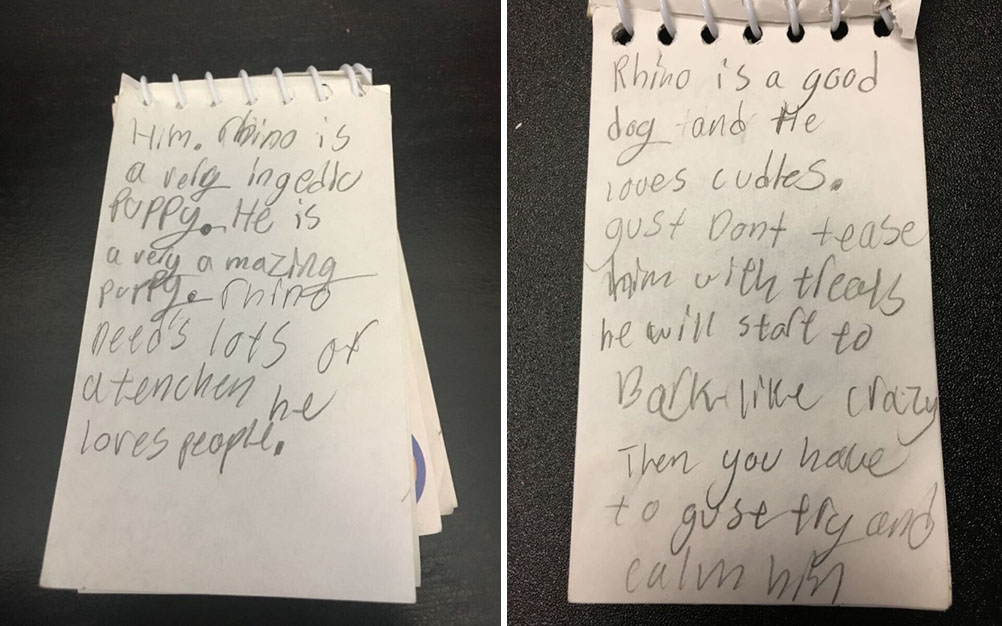 Him. Rhino is
a very ingedic
Puppy. He is
a very amazing
puppy. rhino
need's lots of
atenchen he
loves people.
Rhino is a good
dog and He
loves cudles.
gust Dont tease
him with treats
he will start to
Bark like crazy
Then you have
to gust try and
calm him